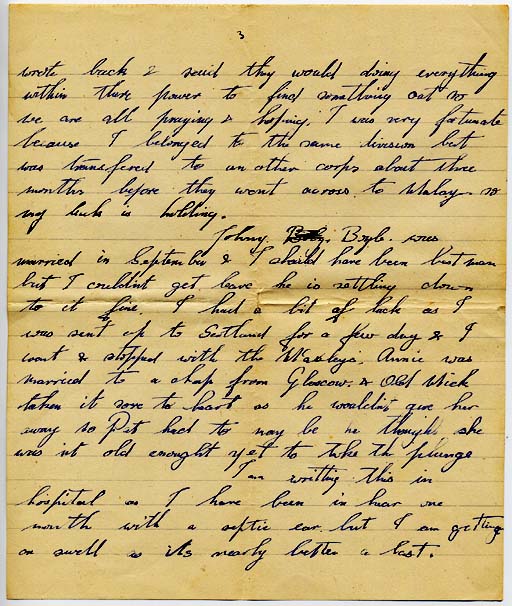 3
wrote back & said they would doing everything
within there power to find somthing out so
we are all praying & hoping. I was very fortunate
because I belonged to the same division but
was transfered to an other corps about three
months before they went across to Malay so
my luck is holding.
Johny Boyle was
married in September & I should have been best man
but I couldnt get leave he is settling down
to it fine. I had a bit of luck as I
was sent up to Scotland for a few day & I
went & stopped with the Annie was
married to a chap from Glascow & Old Mick
taken it sore to heart as he wouldnt give her
away so Pat had to may be he thought she
was nt old enought yet to take the plunge
I am writting this in
hospital as I have been in hear one
month with a septic ear but I am getting
on swell as its nearly better a last.